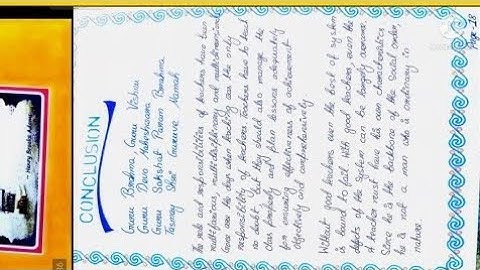 Page-18
CONCLUSION
Guru Bramha Guru Vishnu
Guru Devo Maheshwara
Guru Sakshat Param Bramha
Tasmay Shri Guruve Namah
The role and responsibilities of teachers have been
multifarious, multidisciplinary and multidimensional.
Gone are the days when teaching was the only
responsibility of teachers. Teachers have to teach
no doubt, but they should also manage the
class properly and plan lessons adequately
for ensuring effectiveness of achievement
objectively and comprehensively.
Without good teachers even the best of system
is bound to fail. With good teachers, even the
defects of the system can be largely overcome.
A teacher must have his own characteristics
Since he is the backbone of the social order,
he is not a man who is customary in
nature.